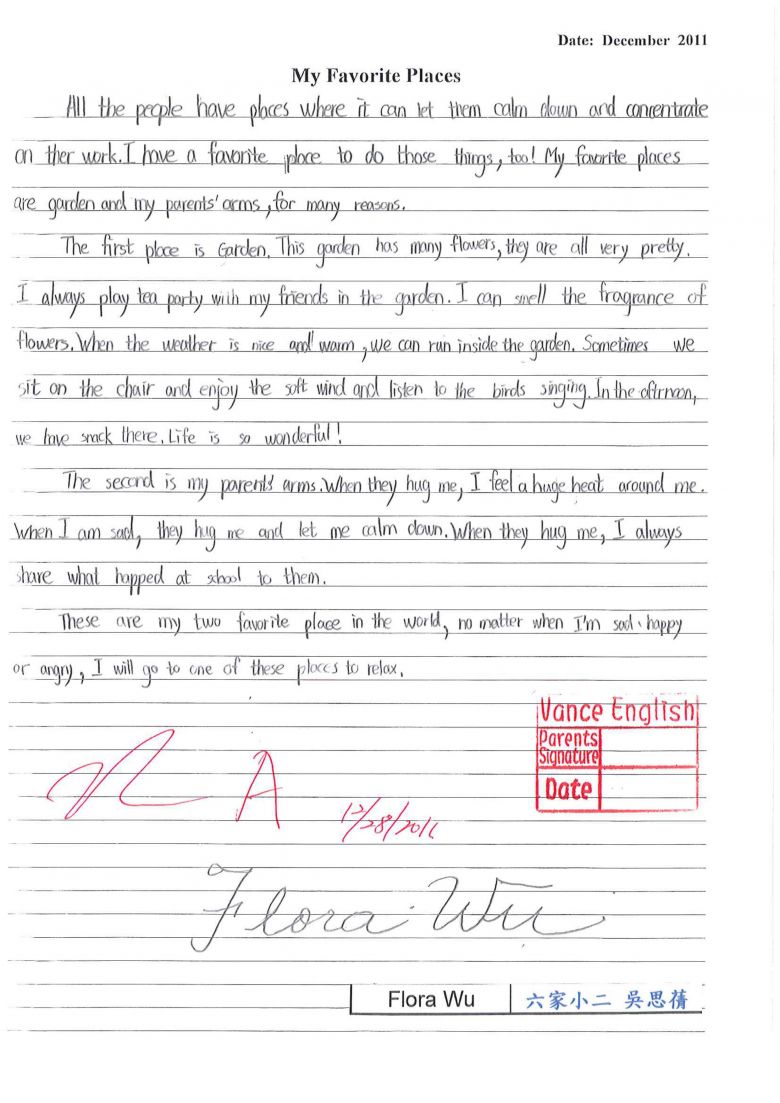 Date: December 2011
My Favorite Places
All the people have places where it can let them calm down and concentrate
on ther work. I have a favorite place to do those things, too! My favorite places
are garden and my parents' arms, for many reasons.
The first place is Garden. This garden has many flowers, they are all very pretty.
I always play tea party with my friends in the garden. I can smell the fragrance of
flowers. When the weather is nice and warm, we can run inside the garden. Sometimes we
sit on the chair and enjoy the soft wind and listen to the birds singing. In the aftrnoon,
we have snack there. Life is so wonderful!
The second is my parents' arms. When they hug me, I feel a huge heat around me.
When I am sad, they hug me and let me calm down. When they hug me, I always
share what happed at school to them.
These are my two favorite place in the world, no matter when I'm sad、happy
or angry, I will go to one of these places to relax.
Vance English
Parents
Signature
Date
A
12/28/2011
Flora Wu
Flora Wu 六家小二 吳思蒨